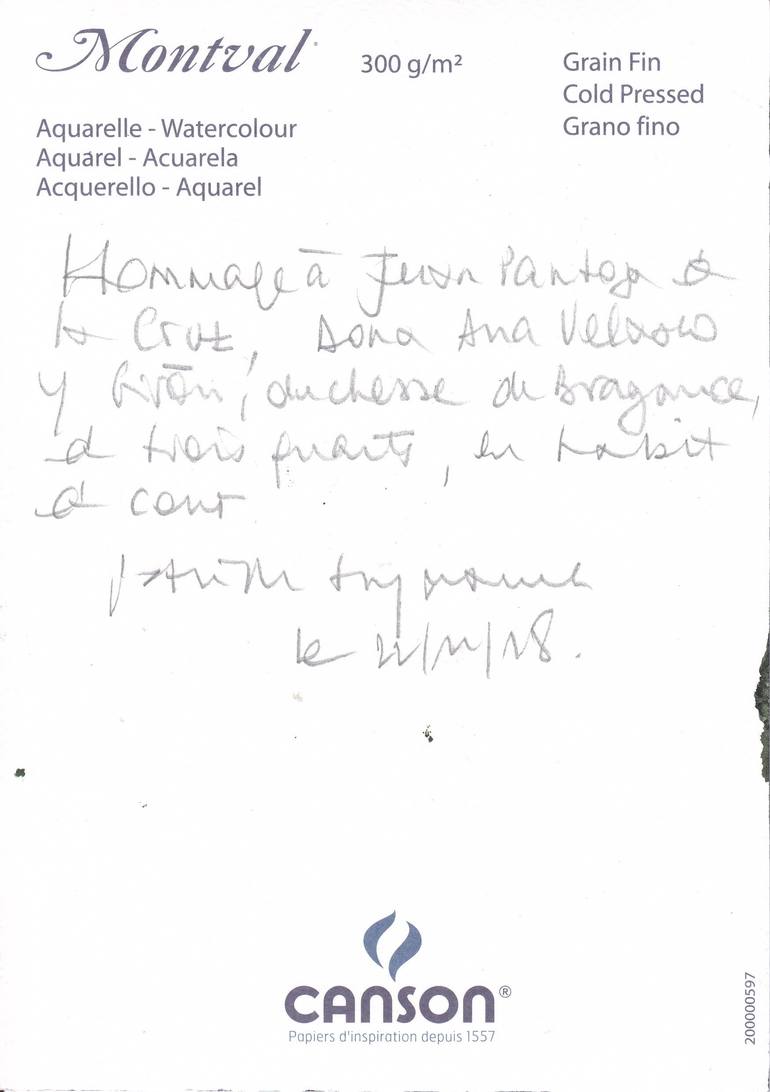 Montval
300 g/m²
Grain Fin
Cold Pressed
Grano fino
Aquarelle - Watercolour
Aquarel - Acuarela
Acquerello - Aquarel
Hommage à Juan Pantoja de
la Cruz, Dona Ana Velasco
y Girón, duchesse de Bragance,
de trois quarts, en habit
de cour
le 22/11/18.
CANSON®
Papiers d'inspiration depuis 1557
200000597